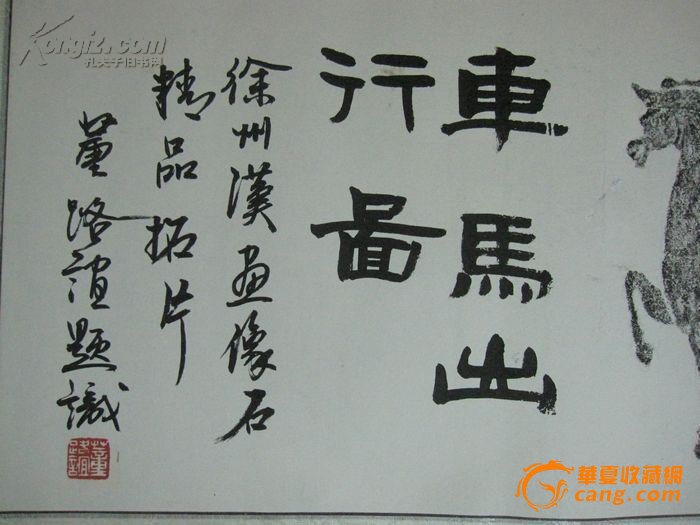 車馬出
行啚
徐州漢畫像石
精品拓片
董路誼題識
孔夫子旧书网
華夏收藏網
cang.com